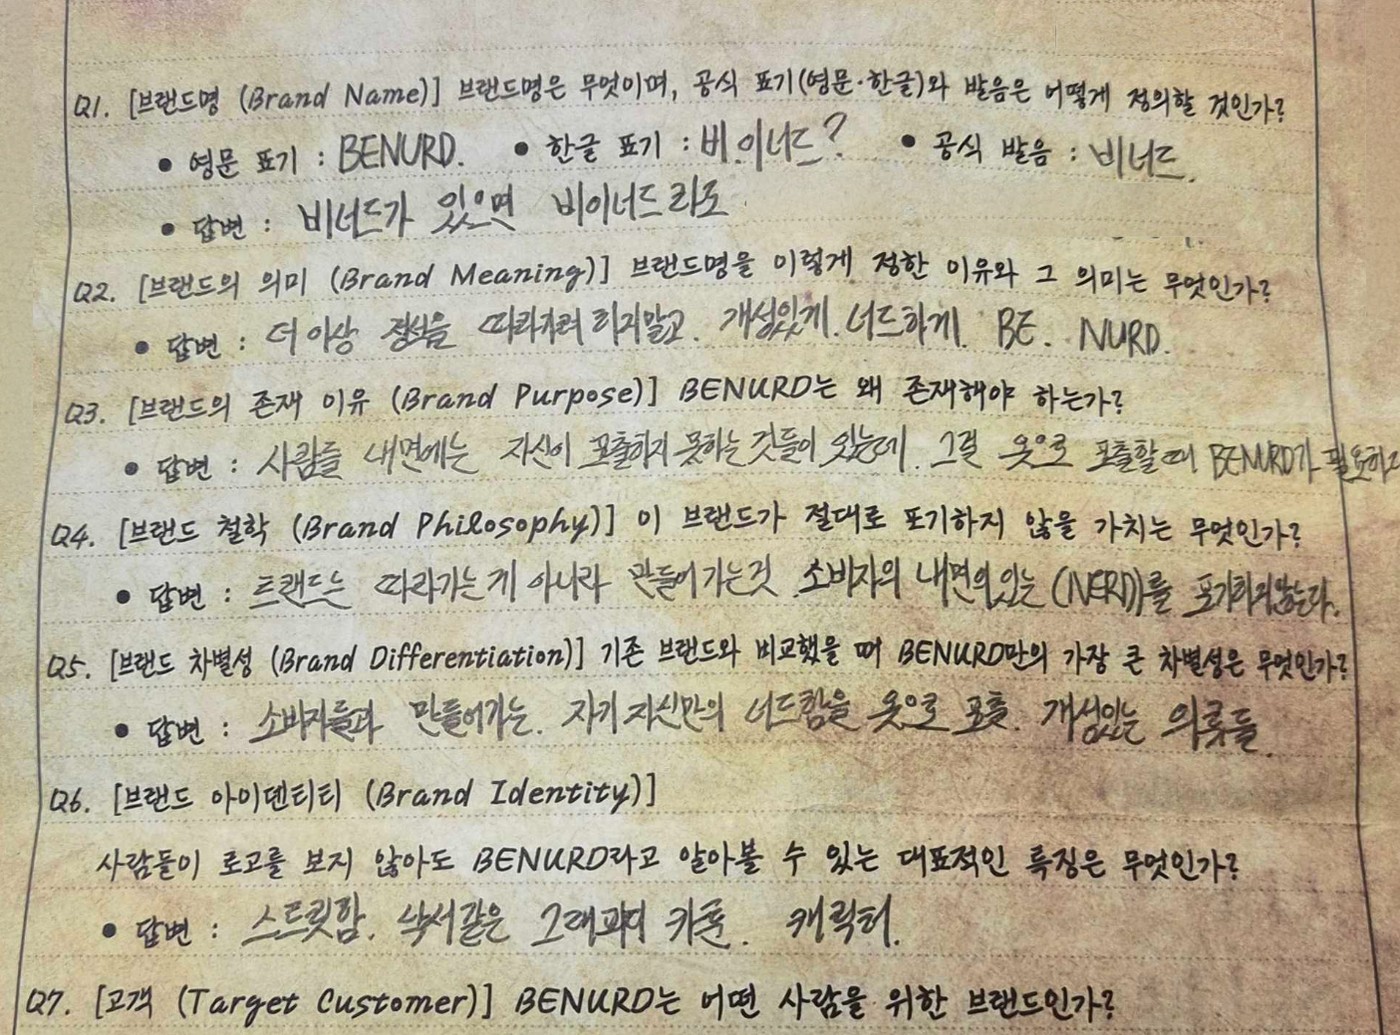 Q1. [브랜드명 (Brand Name)] 브랜드명은 무엇이며, 공식 표기(영문·한글)와 발음은 어떻게 정의할 것인가?
• 영문 표기 : BENURD. • 한글 표기 : 비.이너드? • 공식 발음 : 비너드.
• 답변 : 비너드가 있으면 비이너드라도
Q2. [브랜드의 의미 (Brand Meaning)] 브랜드명을 이렇게 정한 이유와 그 의미는 무엇인가?
• 답변 : 더이상 정석을 말고. 개성있게. 너드하게. BE. NURD.
Q3. [브랜드의 존재 이유 (Brand Purpose)] BENURD는 왜 존재해야 하는가?
• 답변 : 사람들 내면에는 자신이 표출하지 못하는 것들이 있는데. 그걸 옷으로 표출할때 BENURD가 필요하고
Q4. [브랜드 철학 (Brand Philosophy)] 이 브랜드가 절대로 포기하지 않을 가치는 무엇인가?
• 답변 : 트랜드는 따라가는게 아니라 만들어가는것 소비자의 내면의있는 (NERD)를 않는다.
Q5. [브랜드 차별성 (Brand Differentiation)] 기존 브랜드와 비교했을 때 BENURD만의 가장 큰 차별성은 무엇인가?
• 답변 : 소비자들과 만들어가는. 자기자신만의 너드함을 옷으로 표출. 개성있는 의류들.
Q6. [브랜드 아이덴티티 (Brand Identity)]
사람들이 로고를 보지 않아도 BENURD라고 알아볼 수 있는 대표적인 특징은 무엇인가?
• 답변 : 스트릿함. 낙서같은 캐릭터.
Q7. [고객 (Target Customer)] BENURD는 어떤 사람을 위한 브랜드인가?